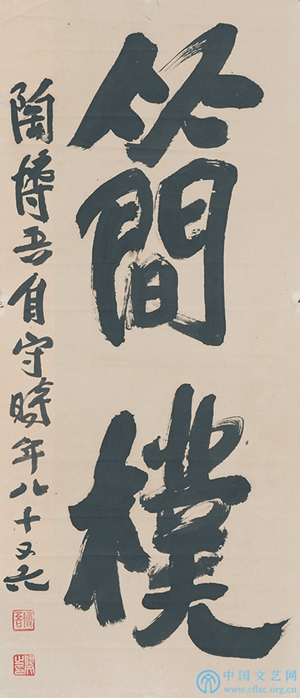 簡樸
陶博吾自守時年八十又
中国文艺网
www.cflac.org.cn